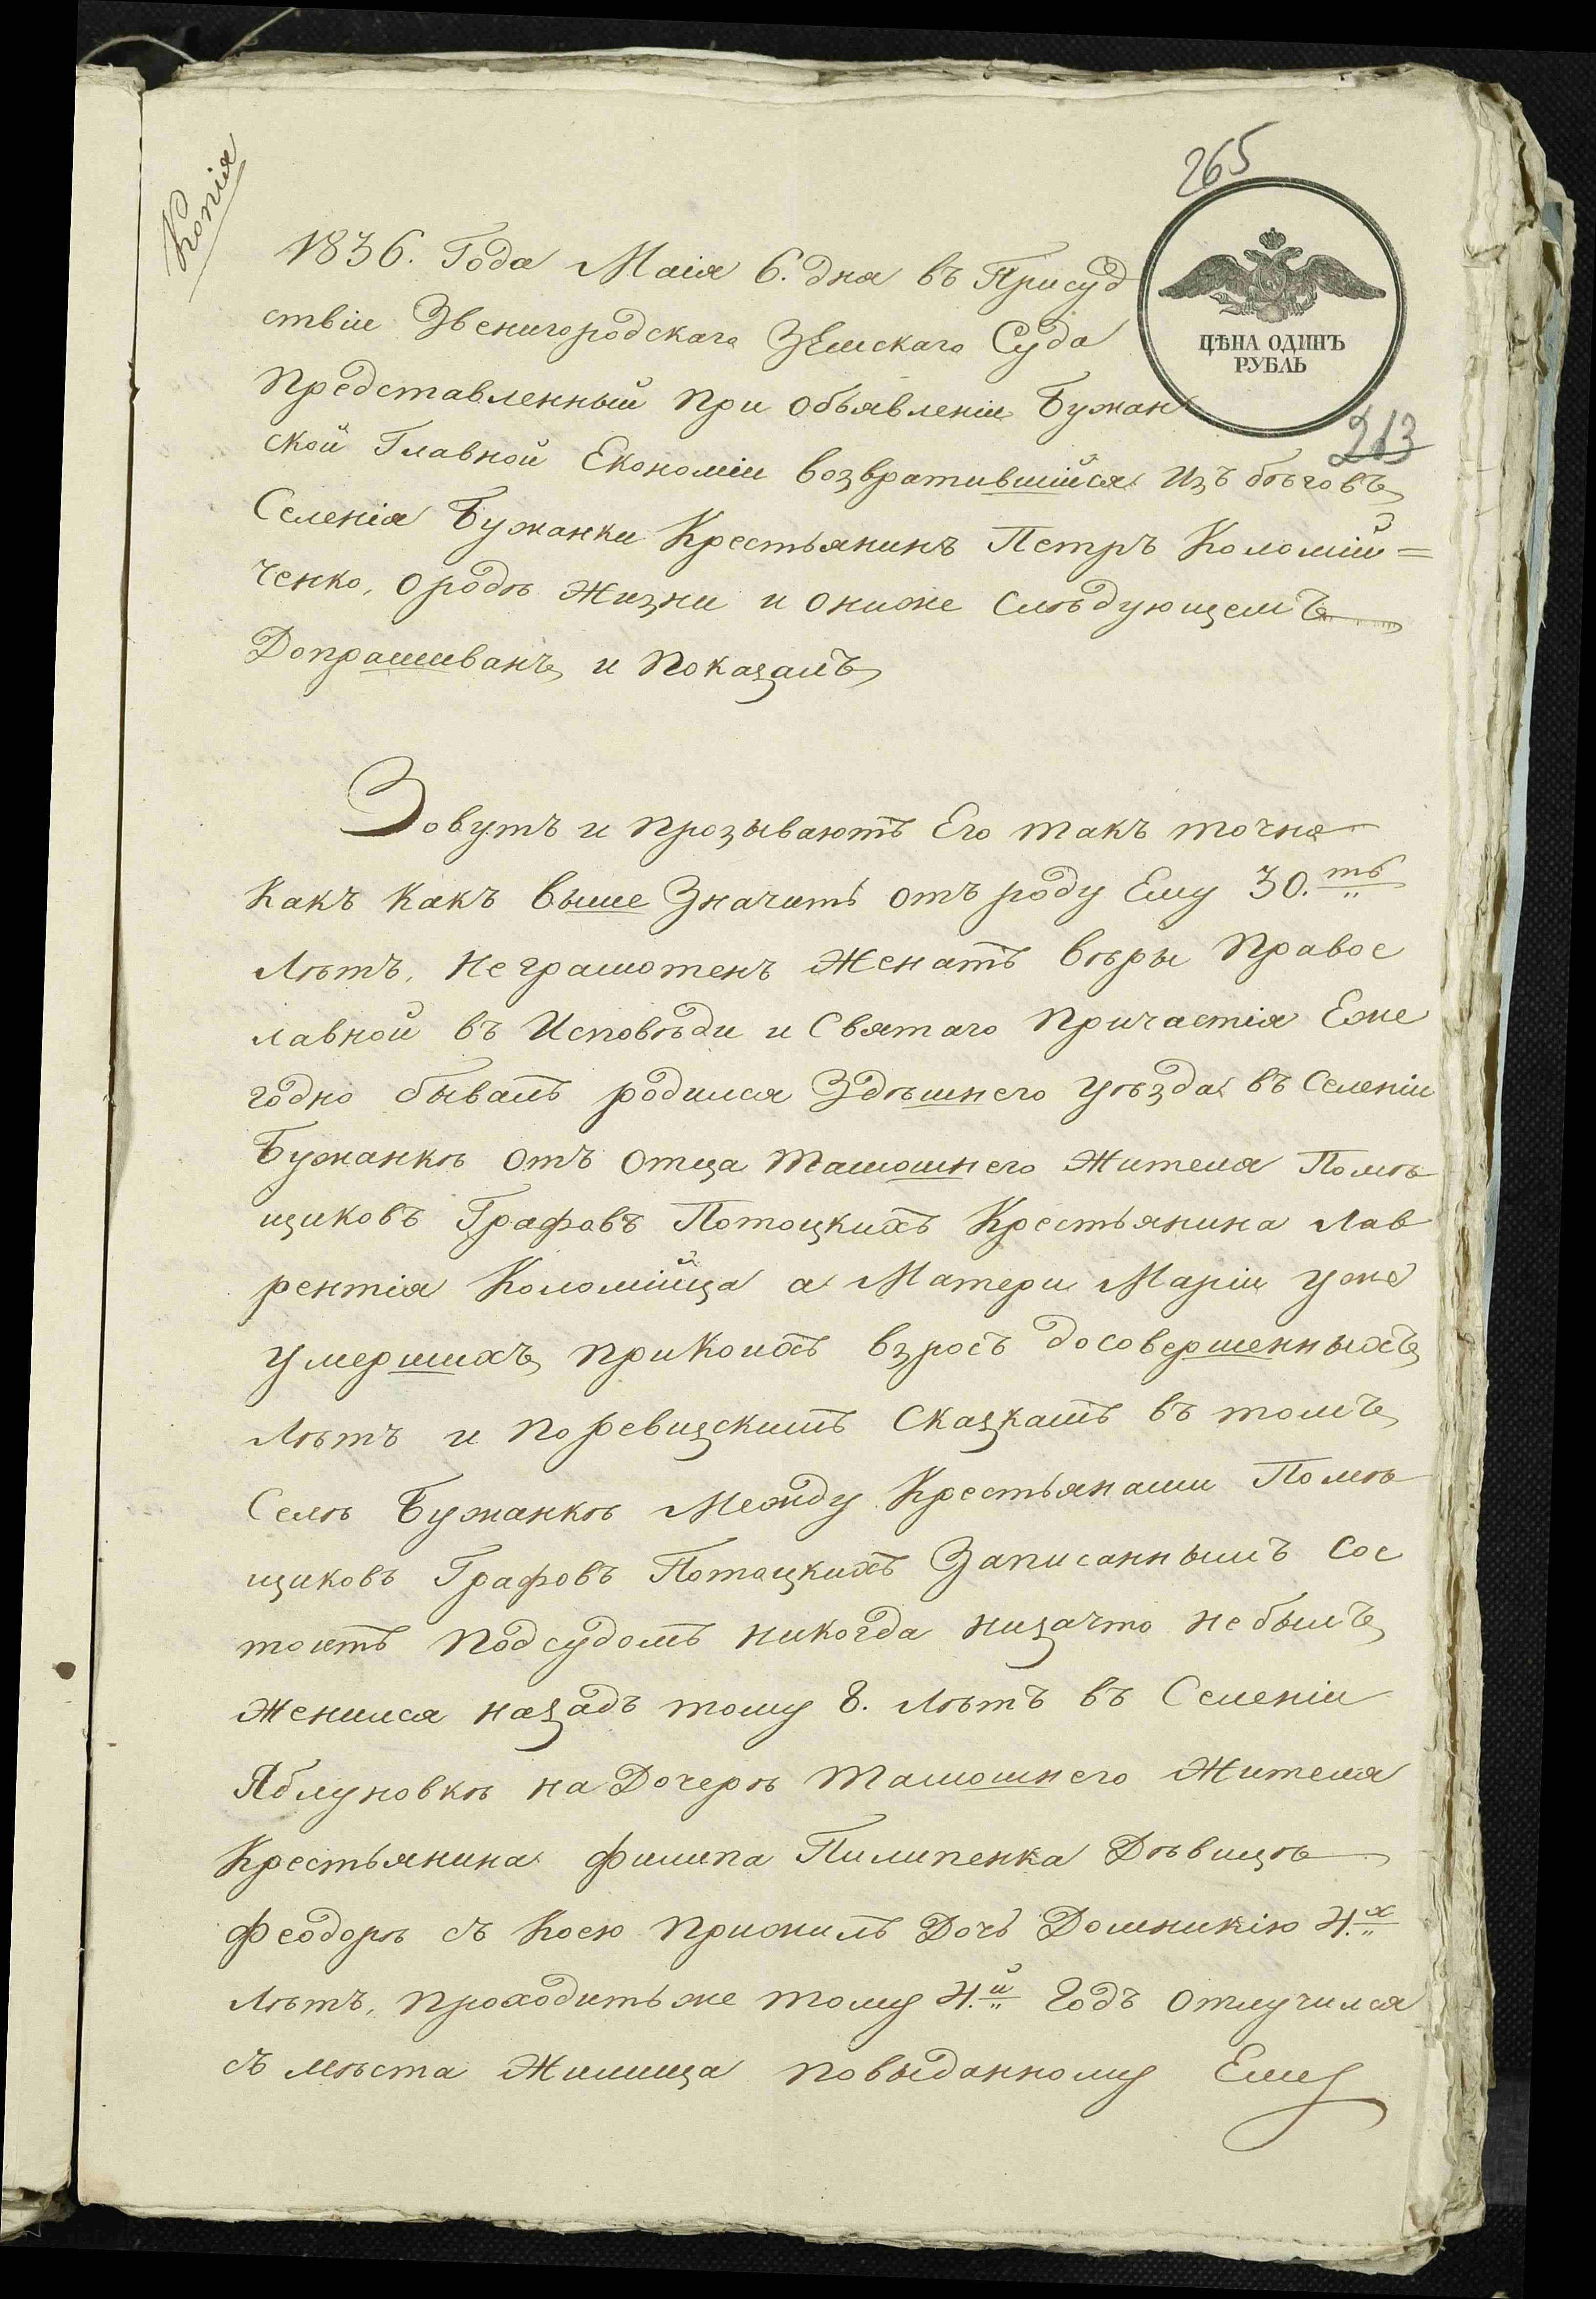 Копія
265
1836. Года Маія 6. дня въ Присуд
ствіи Звенигородскаго Земскаго Суда
ЦѢНА ОДИНЪ
РУБЛЬ
Представленный при объявленіи Бужан
213
ской Главной Економіи возвратившийся изъ бѣговъ
Селенія Бужанки Крестьянинъ Петръ Коломій=
ченко, о родѣ Жизни и ониже слѣдующемъ
Допрашиванъ и показалъ
Зовутъ и прозываютъ Его такъ точно
какъ какъ выше Значитъ отъ роду Ему 30.ть
Лѣтъ, неграмотенъ Женатъ вѣры Правос
лавной въ Исповѣди и Святаго Причастія Еже
годно бывалъ родился Здѣшнего уѣзда въ Селеніи
Бужанкѣ отъ Отца тамошнего Жителя Помѣ
щиковъ Графовъ Потоцкихъ Крестьянина Лав
рентія Коломійца а Матери Маріи уже
умершихъ прикоихъ взросъ досовершенныхъ
Лѣтъ и поревизскимъ Сказкамъ въ томъ
Селѣ Бужанкѣ Между Крестьянами Помѣ
щиковъ Графовъ Потоцкихъ Записаннымъ Сос
тоитъ подсудомъ никогда низачто небылъ
Женился назадъ тому 8. Лѣтъ въ Селеніи
Яблуновкѣ на Дочерѣ тамошнего Жителя
Крестьянина филипа Пилипенка Дѣвицѣ
феодорѣ съ коею прижилъ Дочь Домникію 4.х
Лѣтъ, проходитъже тому 4.й годъ отлучился
съ мѣста Жилища повыданному Ему